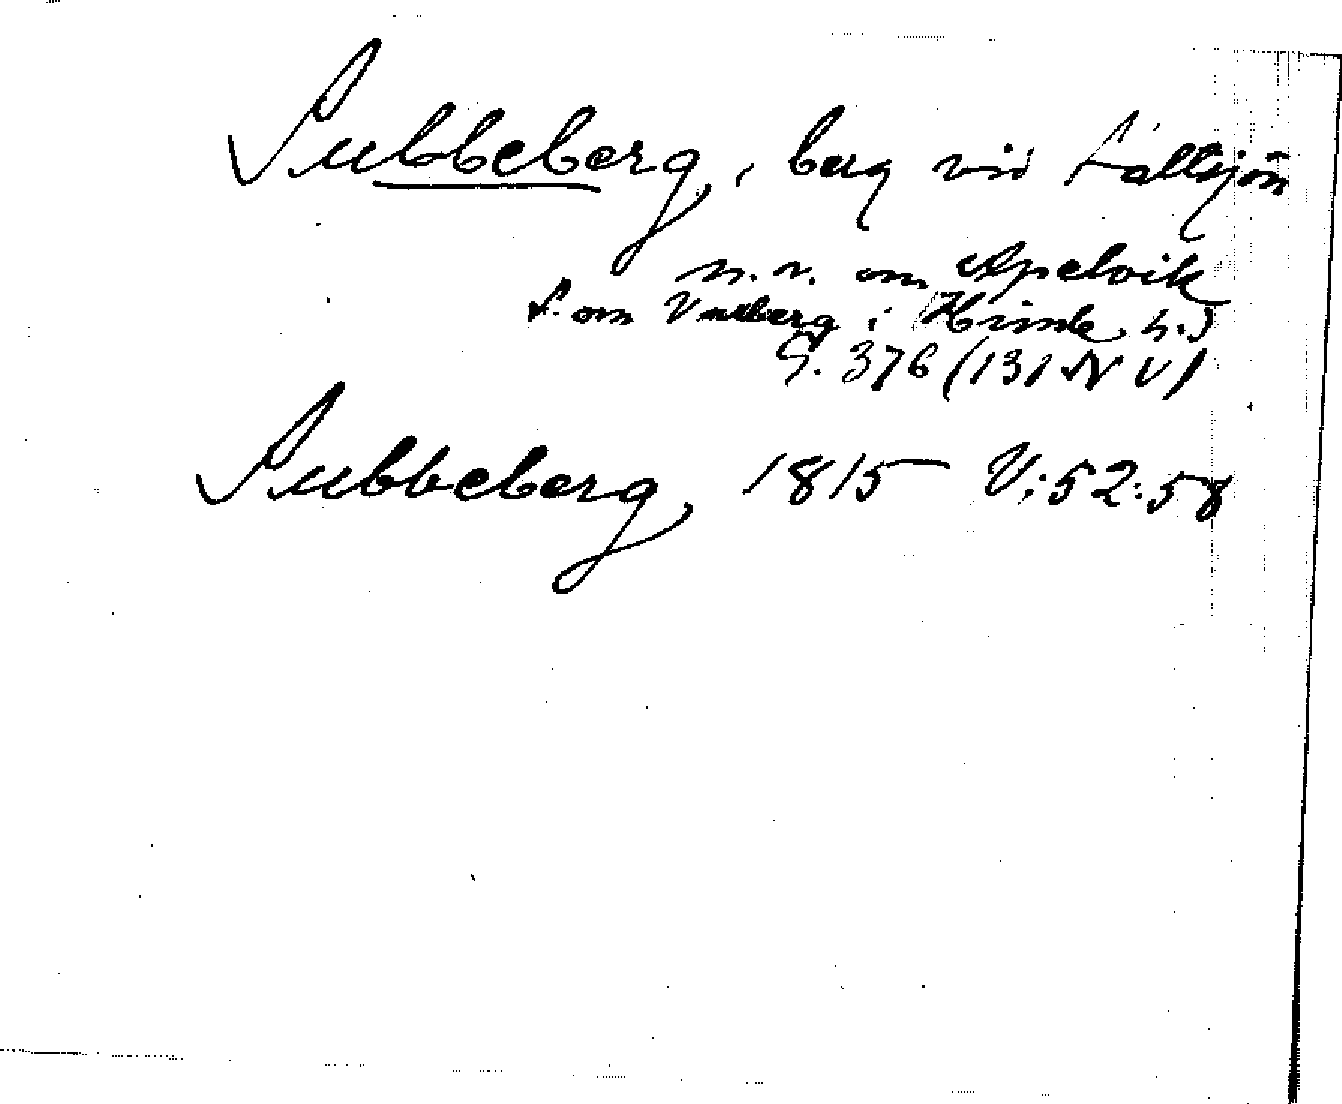 Subbeberg, berg vid Saltsjön
n.v. om Apelvik
S. om Varberg i Himle h.)
G. 376 (131 NV)
Subbeberg 1815 V:52:58